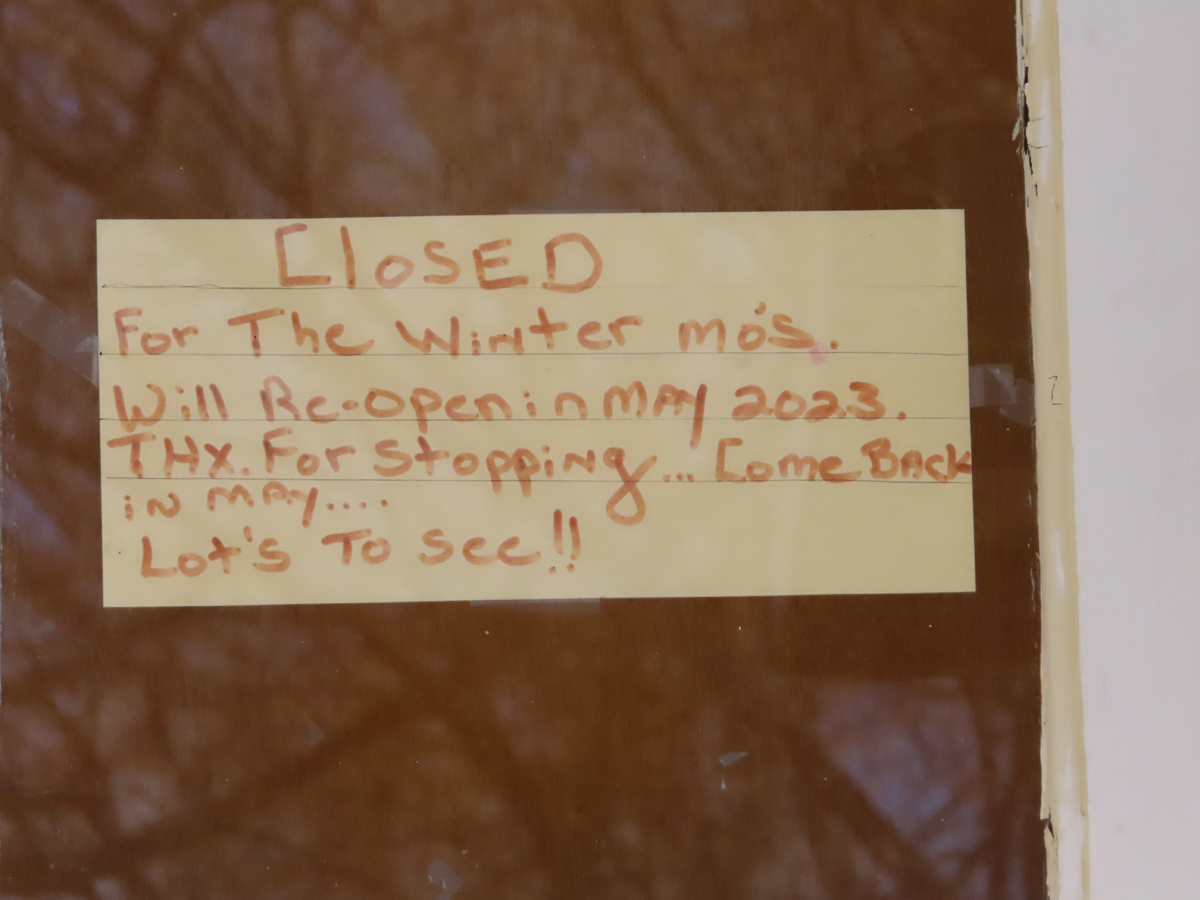 ClosED
For The Winter mo's.
Will Re-open in MAy 2023.
THX. For Stopping... Come Back
in MAy....
Lot's To See!!